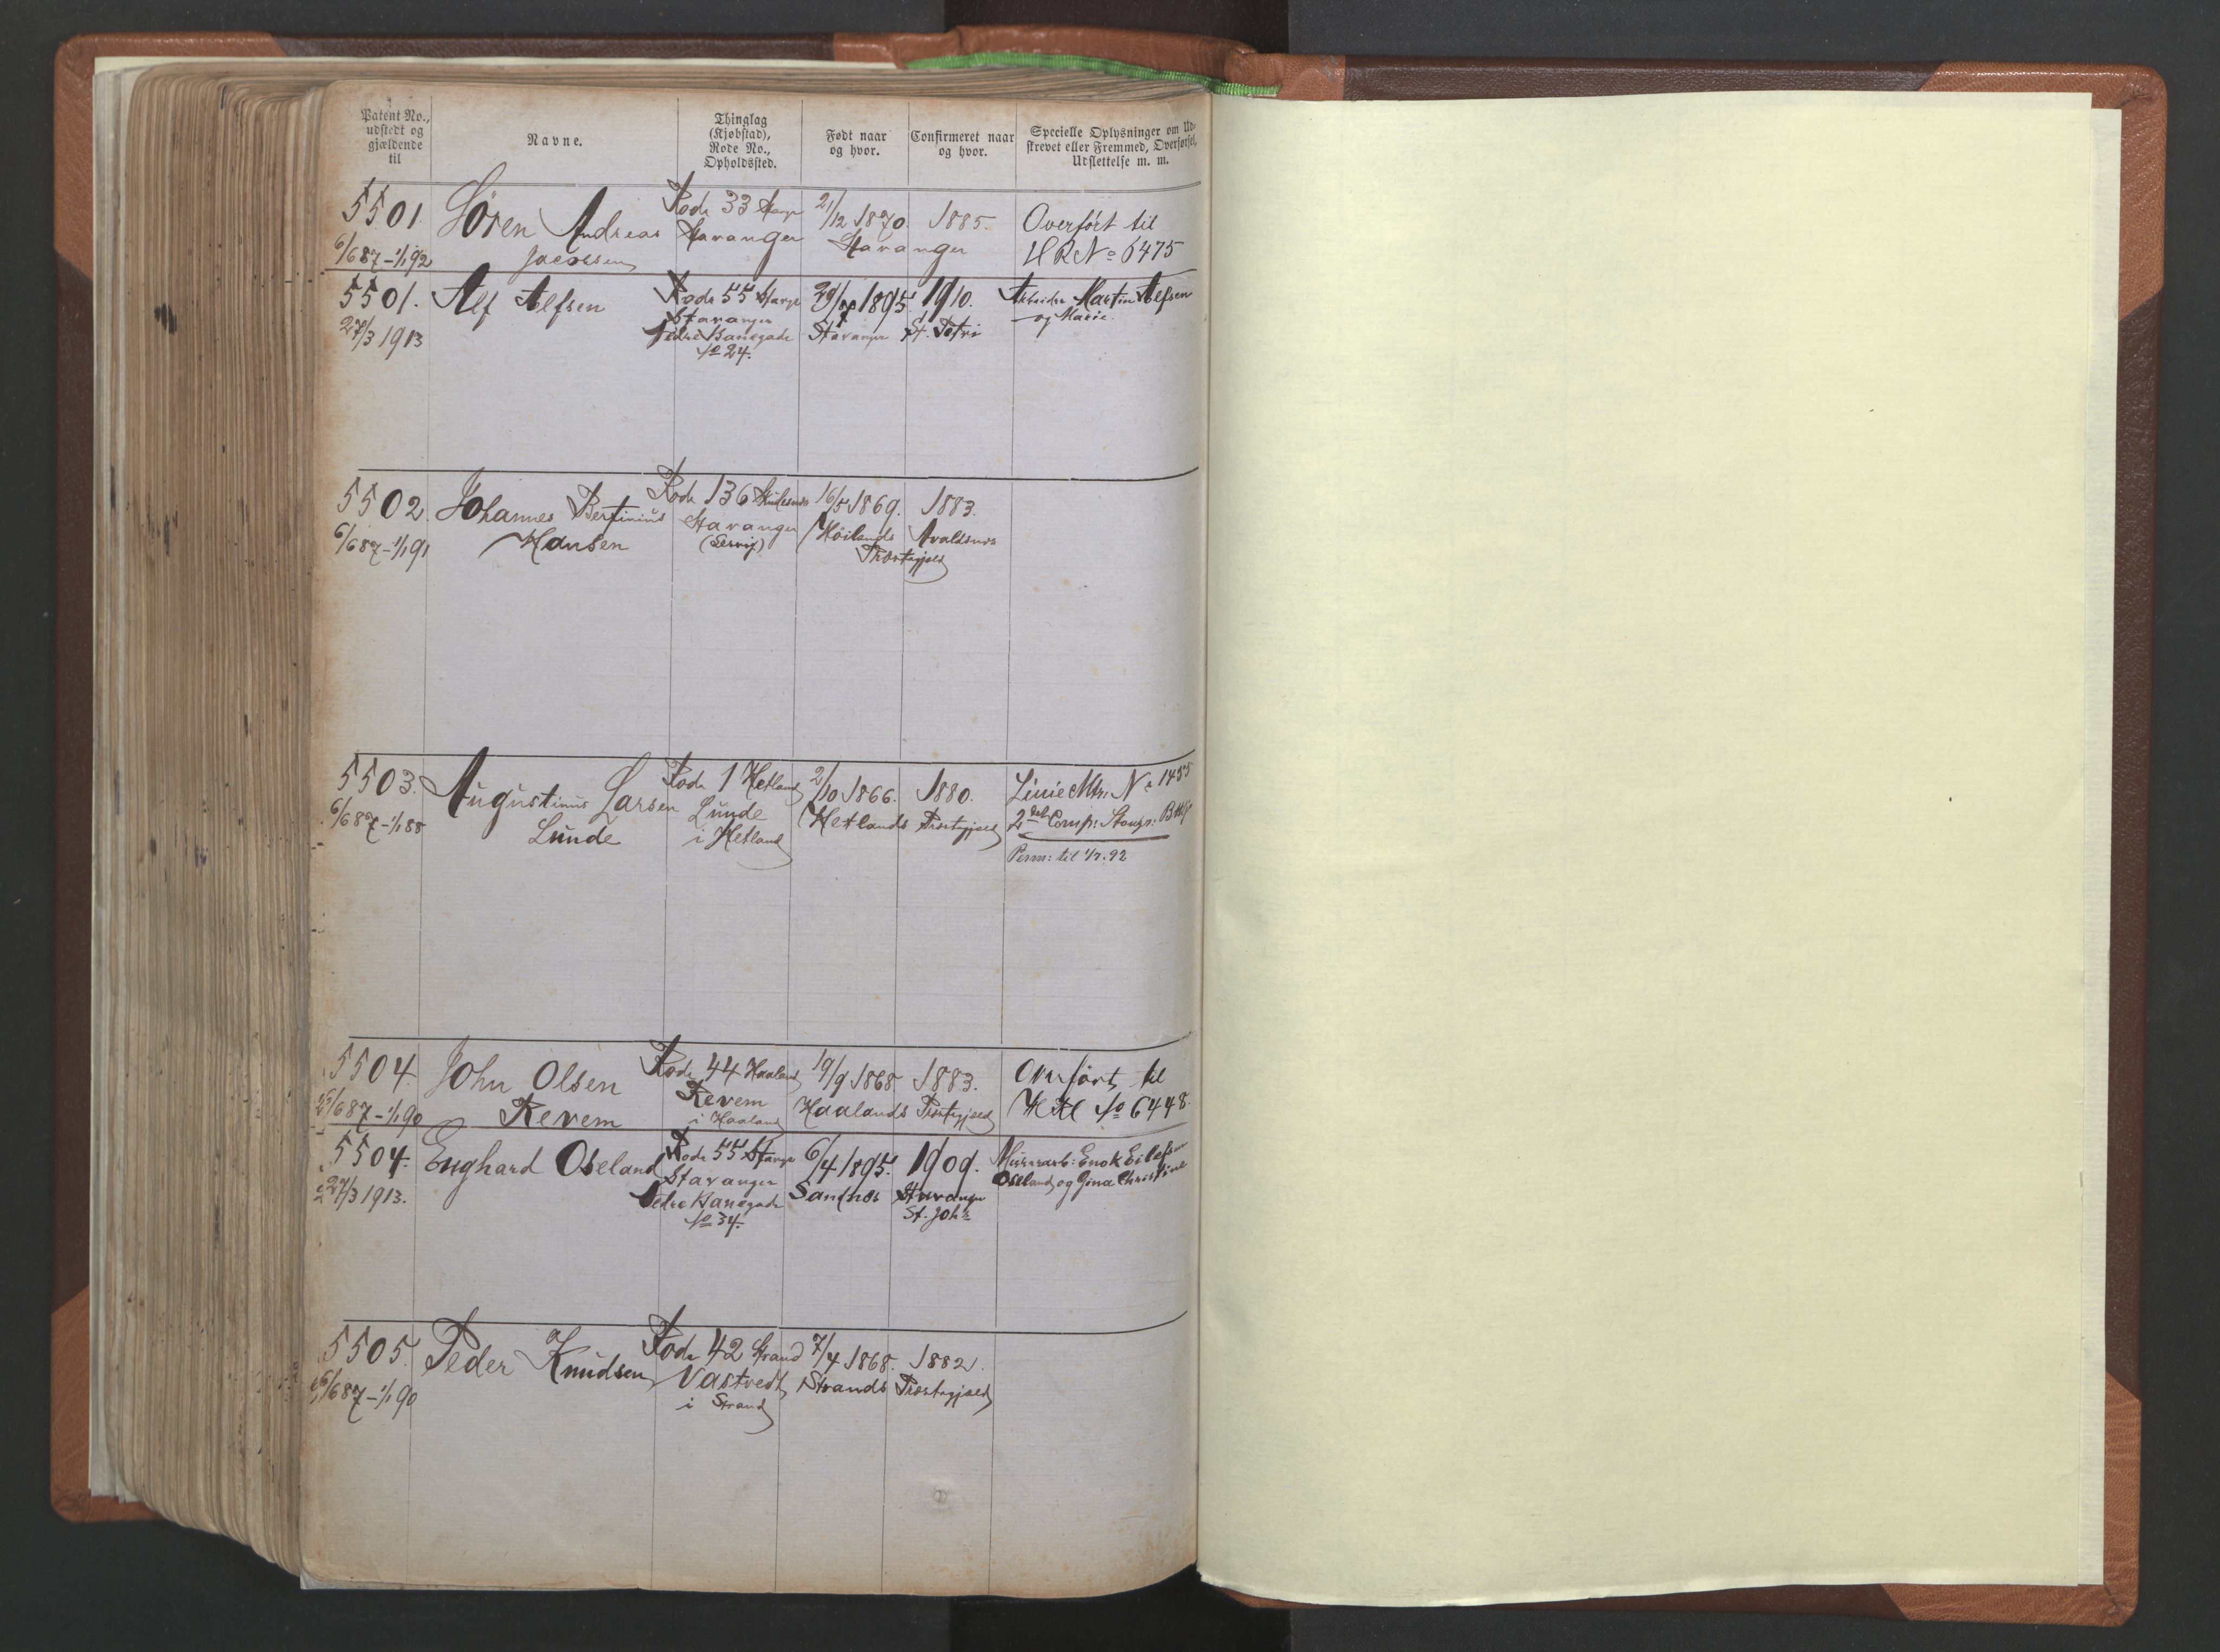 Patent No.,
udstedt og
gjældende
til
Navne.
Thinglag
(Kjøbstad),
Rode No.,
Opholdssted.
Født naar
og hvor.
Confirmeret naar
og hvor.
Specielle Oplysninger om Ud-
skrevet eller Fremmed, Overførsel,
Udslettelse m. m.
5501.
6/6 87 – 1/1 92
Sören Andreas
Jacobsen
Rode 33 Stavgr
Stavanger
21/12 1870.
Stavanger
1885.
Overfört til
HR No 6475
5501.
27/3 1913
Alf Alfsen
Rode 55 Stavgr
Stavanger
Nedre Banegade
No 24.
29/7 1895
Stavanger
1910.
St. Petri
Arbeider Martin Alfsen
og Marie.
5502.
6/6 87 – 1/1 91
Johannes Bertinius
Hansen
Rode 136 Skudesnæs
Stavanger
16/5 1869.
Höilands
1883.
Avaldsnæs
Præstegjæld
5503.
6/6 87 – 1/1 88
Augustinus Larsen
Lunde
Rode 1 Hetland
Lunde
i Hetland
2/10 1866.
Hetlands
1880.
Præstegjæld
Linie Mtr. No 1455
2den Comp: Stavgr: Batl
Perm: til 1/7. 92
5504
25/6 87 – 1/1 90
John Olsen
Revem
Rode 44 Haaland
Revem
i Haaland
19/9 1868
Haalands
1883.
Præstegjæld
Overfört til
HR No 6448.
5504.
27/3 1913.
Enghard Oseland
Rode 55 Stavgr
Stavanger
Nedre Banegade
No 34.
6/4 1895.
Sandnes
1909.
Stavanger
St. Johs
Murerarb: Enok Eilefsen
Oseland og Gina Christine
5505.
25/6 87 – 1/1 90
Peder Knudsen
Rode 42 Strand
Vastvedt
i Strand
7/4 1868.
Strands
1882.
Præstegjæld